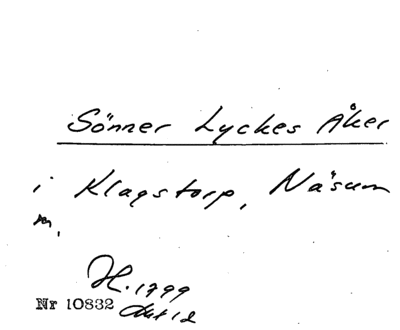 Sönner Lyckes Åker
i Klagstorp, Näsum
m,
H. 1799
Nr 10832 Akt 12